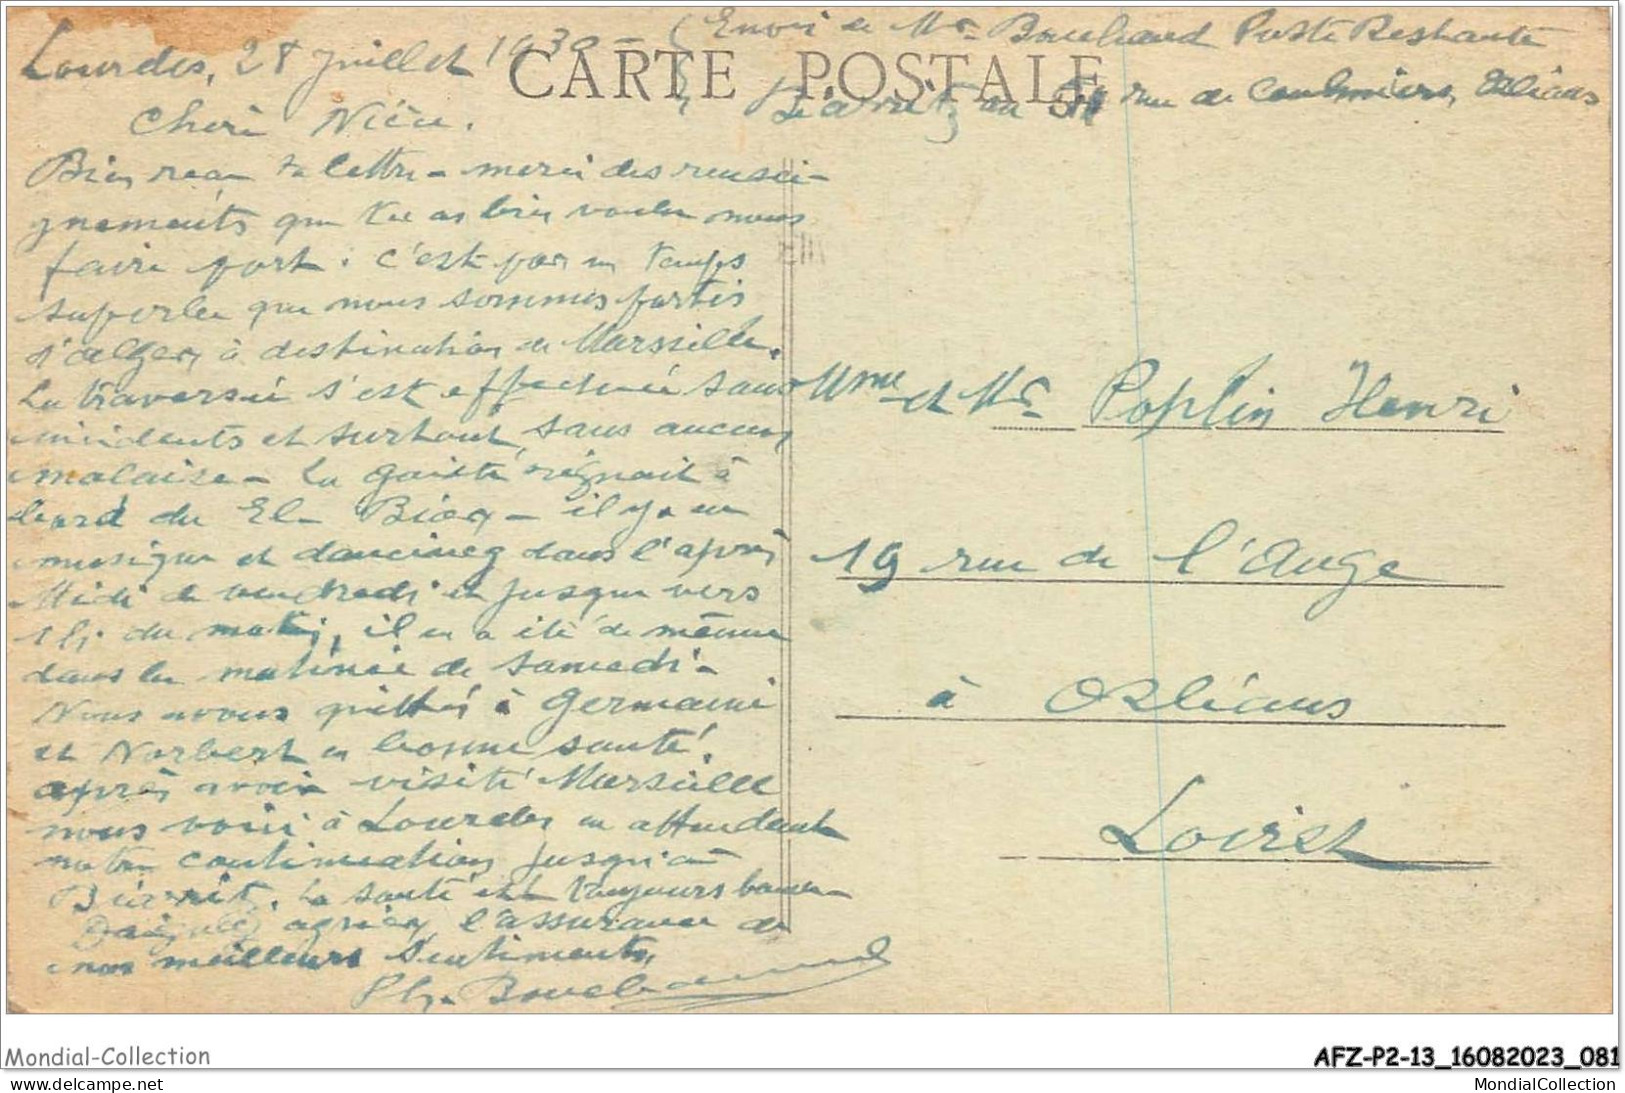 Lourdes, 28 Juillet 1930 -
(Envoi de Mr Bouchaud Poste Restante
CARTE POSTALE
Biarritz ou 51 rue de Coulmiers, Orléans
Chère Nièce.
Bien reçu ta lettre - merci des rensei-
gnements que tu as bien voulu nous
faire part : c'est par un temps
superbe que nous sommes partis
d'Alger, à destination de Marseille.
La traversée s'est effectuée sans
incidents et surtout, sans aucun
malaise - La gaité régnait à
bord du El - Biar - il y a eu
musique et dancing dans l'après
Midi de vendredi et jusque vers
1h. du matin, il en a été de même
dans la matinée de Samedi -
Nous avons quittés à Germaine
et Norbert en bonne santé.
après avoir visité Marseille
nous voici à Lourdes en attendant
notre continuation jusqu'à
Biarritz. La santé est toujours bonne -
Daignez agréer, l'assurance de
nos meilleurs sentiments,
Ph. Bouchaud
Mme et Mr. Poplin Henri
19 rue de l'Ange
à Orléans
Loiret
Mondial-Collection
AFZ-P2-13_16082023_081
www.delcampe.net
MondialCollection